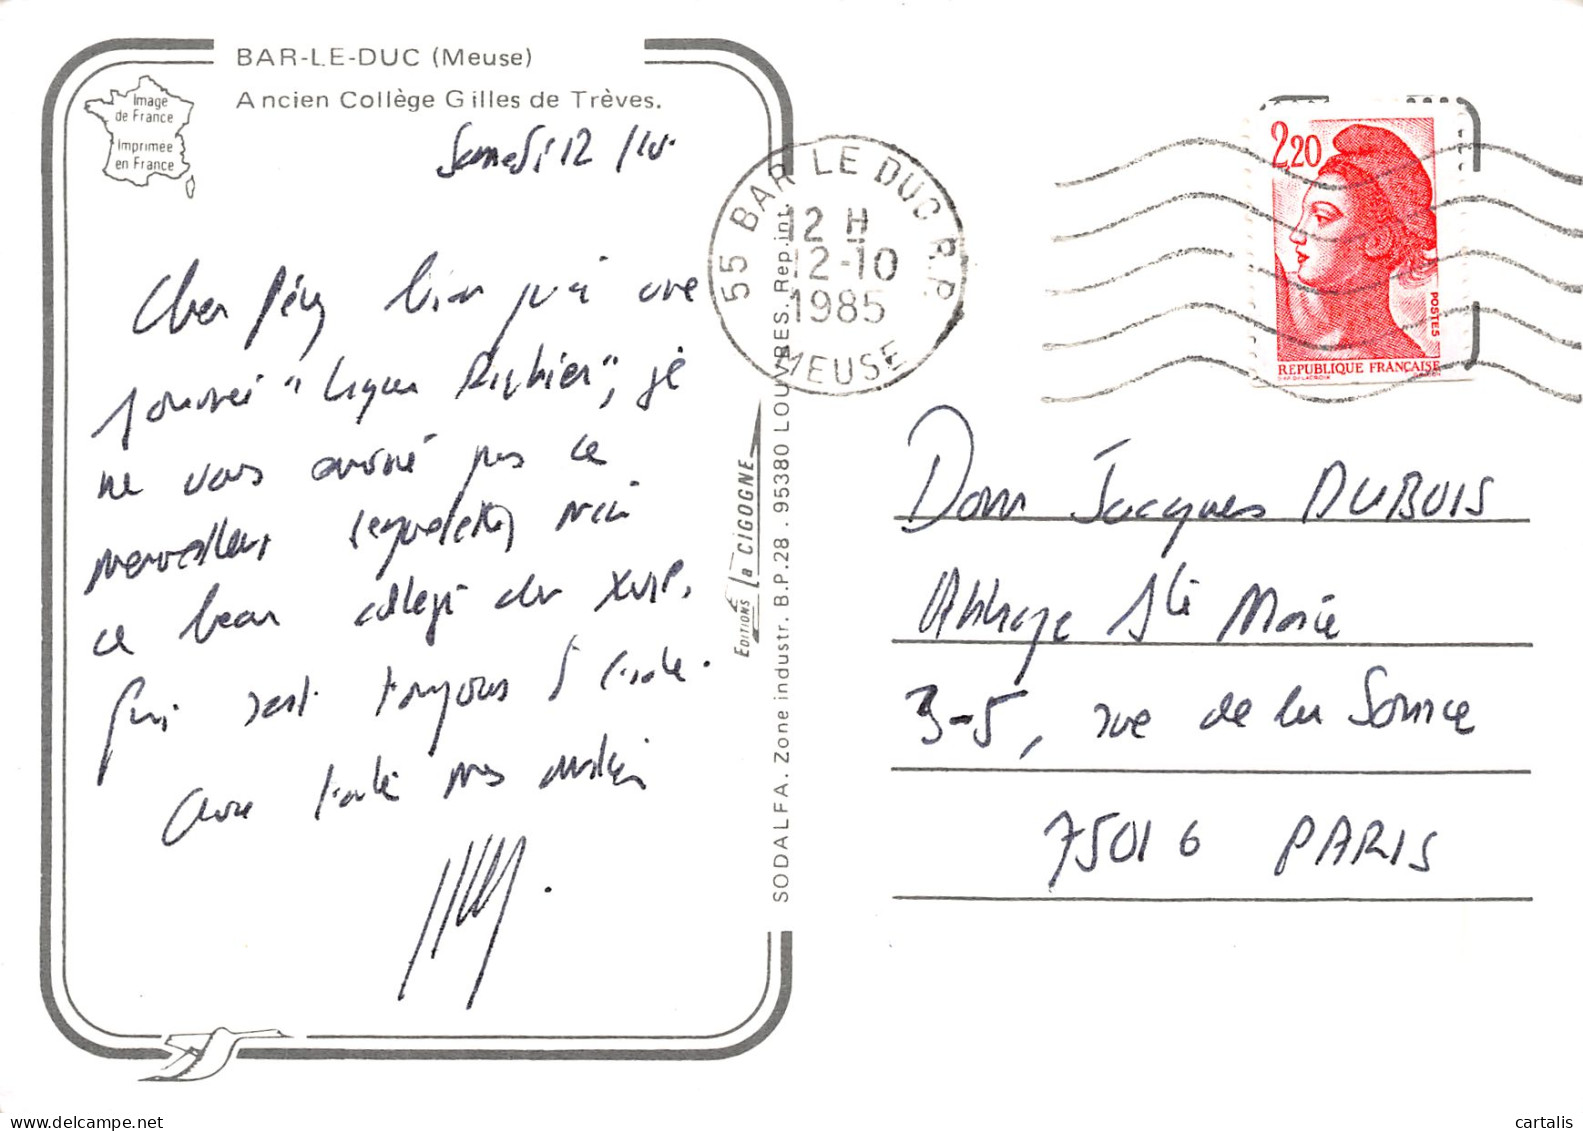 BAR-LE-DUC (Meuse)
Ancien Collège Gilles de Trèves.
Image
de France
Imprimée
en France
Samedi 12
Cher Père, bien qu'à une
journée "Ligier Richier", je
ne vous pas ce
merveilleux
ce beau collège du XVIe.
qui sert toujours d'école.
Avec toute mes amitiés
EDITIONS la CIGOGNE
SODALFA. Zone industr. B.P.28. 95380 LOUVRES. Rep.int.
55 BAR LE DUC R.P.
12 H
12-10
1985
MEUSE
2,20
POSTES
REPUBLIQUE FRANÇAISE
Dom Jacques DUBOIS
Abbaye Ste Marie
3-5, rue de la Source
75016 PARIS
cartalis